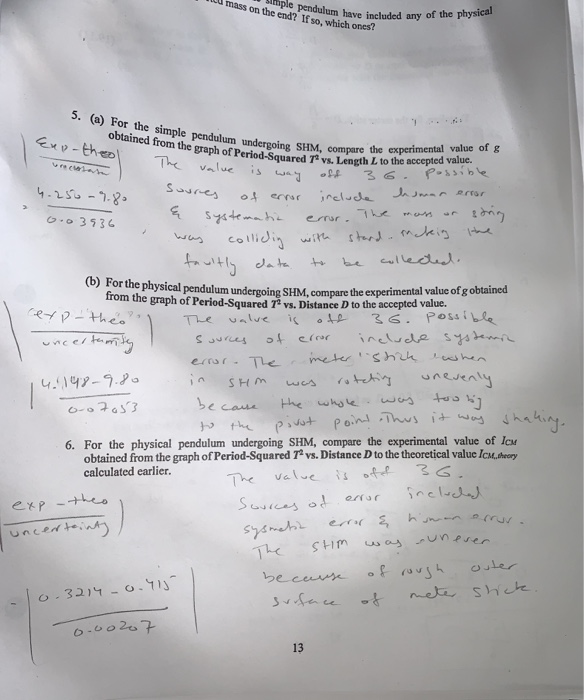 simple pendulum have included any of the physical
mass on the end? If so, which ones?
5. (a) For the simple pendulum undergoing SHM, compare the experimental value of g
obtained from the graph of Period-Squared T² vs. Length L to the accepted value.
Exp - theo
The value is way off 3 6. Possible
4.250 - 9.80
0.03936
sources of error include human error
& systematic error. The mass on string
was colliding with stand. making the
faultly data to be collected.
(b) For the physical pendulum undergoing SHM, compare the experimental value of g obtained
from the graph of Period-Squared T² vs. Distance D to the accepted value.
exp - theo
uncertainty
The value is off 3 6. Possible
sources of error include systemic
error. The meter stick when
in SHM was rotating unevenly
because the whole was too big
to the pivot point. Thus it was shaking.
4.1148 - 9.80
0.07053
6. For the physical pendulum undergoing SHM, compare the experimental value of ICM
obtained from the graph of Period-Squared T² vs. Distance D to the theoretical value ICM,theory
calculated earlier.
The value is off 3 6.
exp - theo
uncertainty
Sources of error included
sysmetic error & human error.
The SHM was uneven
because of rough outer
surface of meter stick.
0.3214 - 0.415
0.00207
13